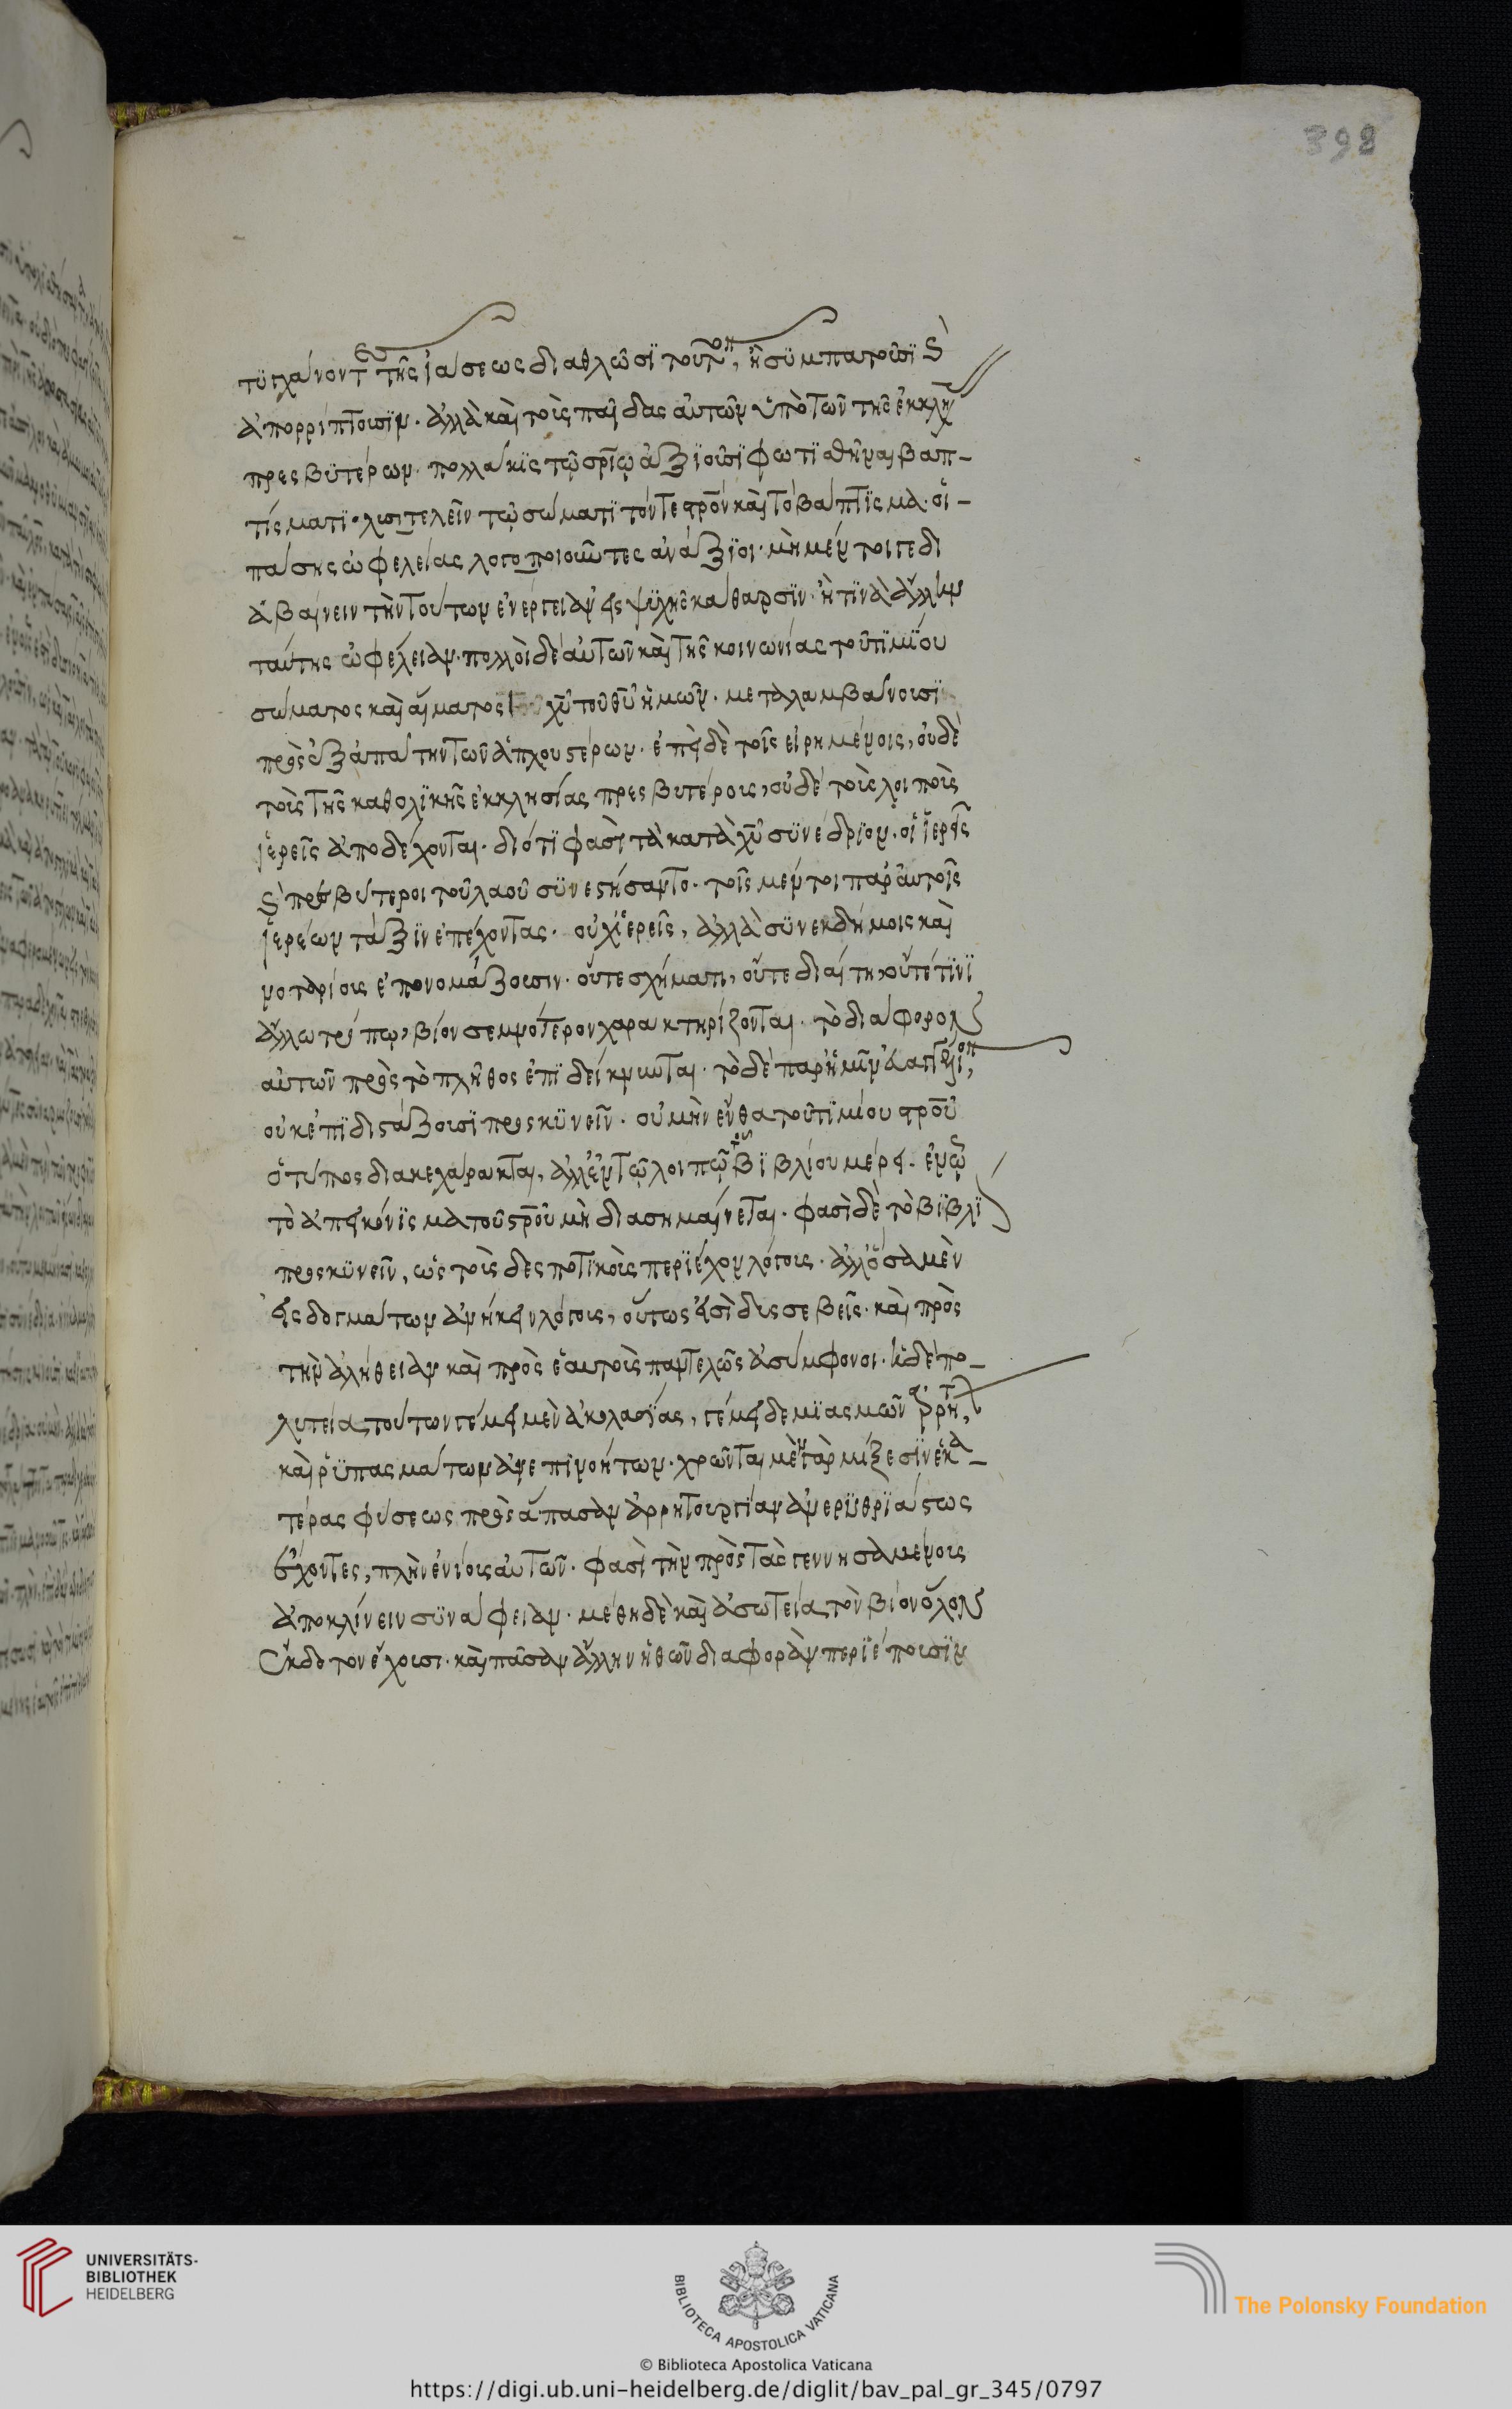 398
τϋγχάνοντες τῆς ἰάσεως διαθλῶσϊ τοῦτον, ἢ σϋμπατοῦσϊ καὶ
ἀπορρίπτουσϊν. ἀλλὰ καὶ τοὺς παῖδας αὐτῶν ὑπὸ τῶν τῆς ἐκκλη
πρεσβϋτέρων. πολλάκϊς τῷ σρῖω ἀξϊοῦσϊ φωτϊσθῆναι βαπ-
τίσματϊ. λυσιτελεῖν τῷ σώματϊ τόν τε σρον καὶ τὸ βάπτϊσμα. οἱ-
πάσης ὠφελείας λογοποιοῦντες ἀνάξϊοι. μὴ μέν τοι γε δι
ἀβαίνειν τὴν τούτων ἐνέργειαν εἰς ψϋχῆς κάθαρσϊν. ἤ τϊνα ἄλλην
ταύτης ὠφέλειαν. πολλοὶ δὲ αὐτῶν καὶ τῆς κοινωνίας τοῦ τϊμΐου
σώματος καὶ αἵματος χυ τοῦ θυ ἡμῶν. μεταλαμβάνουσϊ
πρὸς ἐξαπάτην τῶν ἁπλουστέρων. ἐπεὶ δὲ τοῖς εἰρημένοις, οὐδὲ
τοὺς τῆς καθολϊκῆς ἐκκλησίας πρεσβυτέρους, οὐδὲ τοὺς λοιποὺς
ἱερεῖς ἀποδέχονται. διότϊ φασὶ τὰ κατὰ χυ σϋνέδρϊον. οἱ ἱερεῖς
καὶ πρεσβύτεροι τοῦ λαοῦ σϋνεστήσαντο. τοὺς μέν τοι παρ' αὐτοῖς
ἱερέων τάξϊν ἐπέχοντας. οὐχ ἱερεῖς, ἀλλὰ σϋνεκδήμους καὶ
νοταρίους ἐπονομάζουσιν. οὔτε σχήματι, οὔτε διαίτη, οὔτέ τϊνϊ
ἄλλω τρόπω, βίον σεμνότερον χαρακτηρίζονται. τὸ διάφορον
αὐτῶν πρὸς τὸ πλῆθος ἐπϊδείκνυνται. τὸ δὲ παρ' ἡμῖν
οὐκ ἐπϊδιστάζουσϊ προσκϋνεῖν. οὐ μὴν ἔνθα τοῦ τϊμίου σροῦ
ὁ τύπος διακεχάρακται, ἀλλ' ἐν τῷ λοιπῷ τοῦ βϊβλίου μέρει. ἐν ᾧ
τὸ ἀπεικόνϊσμα τοῦ σροῦ μὴ διασημαίνεται. φασὶ δὲ τὸ βϊβλϊ
προσκϋνεῖν, ὡς τοὺς δεσποτϊκοὺς περϊέχον λόγους. ἀλλ' ὅσα μὲν
εἰς δογμάτων ἀνήκει λόγους, οὕτως εἰσὶ δυσσεβεῖς. καὶ πρὸς
τὴν ἀλήθειαν καὶ πρὸς ἑαυτοὺς παντελῶς ἀσύμφονοι. ἡ δὲ πο-
λιτεία τούτων γέμει μὲν ἀκολασΐας, γέμει δὲ μϊασμῶν
καὶ ῥϋπασμάτων ἀνεπινοήτων. χρῶνται μὲν γὰρ μίξεσϊν ἑκα-
τέρας φύσεως πρὸς ἅπασαν ἀρρητουργϊαν ἀνερϋθρϊάστως
ἔχοντες, πλὴν ἐνίους αὐτῶν. φασὶ τὴν πρὸς τὰς γεννησαμένους
ἀποκλίνειν σϋνάφειαν. μέθη δὲ καὶ ἀσωτεία τὸν βίον ὅλον
ἔκδοτον ἔχουσι. καὶ πᾶσαν ἄλλην ἠθῶν διαφορὰν περϊέπουσϊν
UNIVERSITÄTS-
BIBLIOTHEK
HEIDELBERG
BIBLIOTECA APOSTOLICA VATICANA
The Polonsky Foundation
© Biblioteca Apostolica Vaticana
https://digi.ub.uni-heidelberg.de/diglit/bav_pal_gr_345/0797